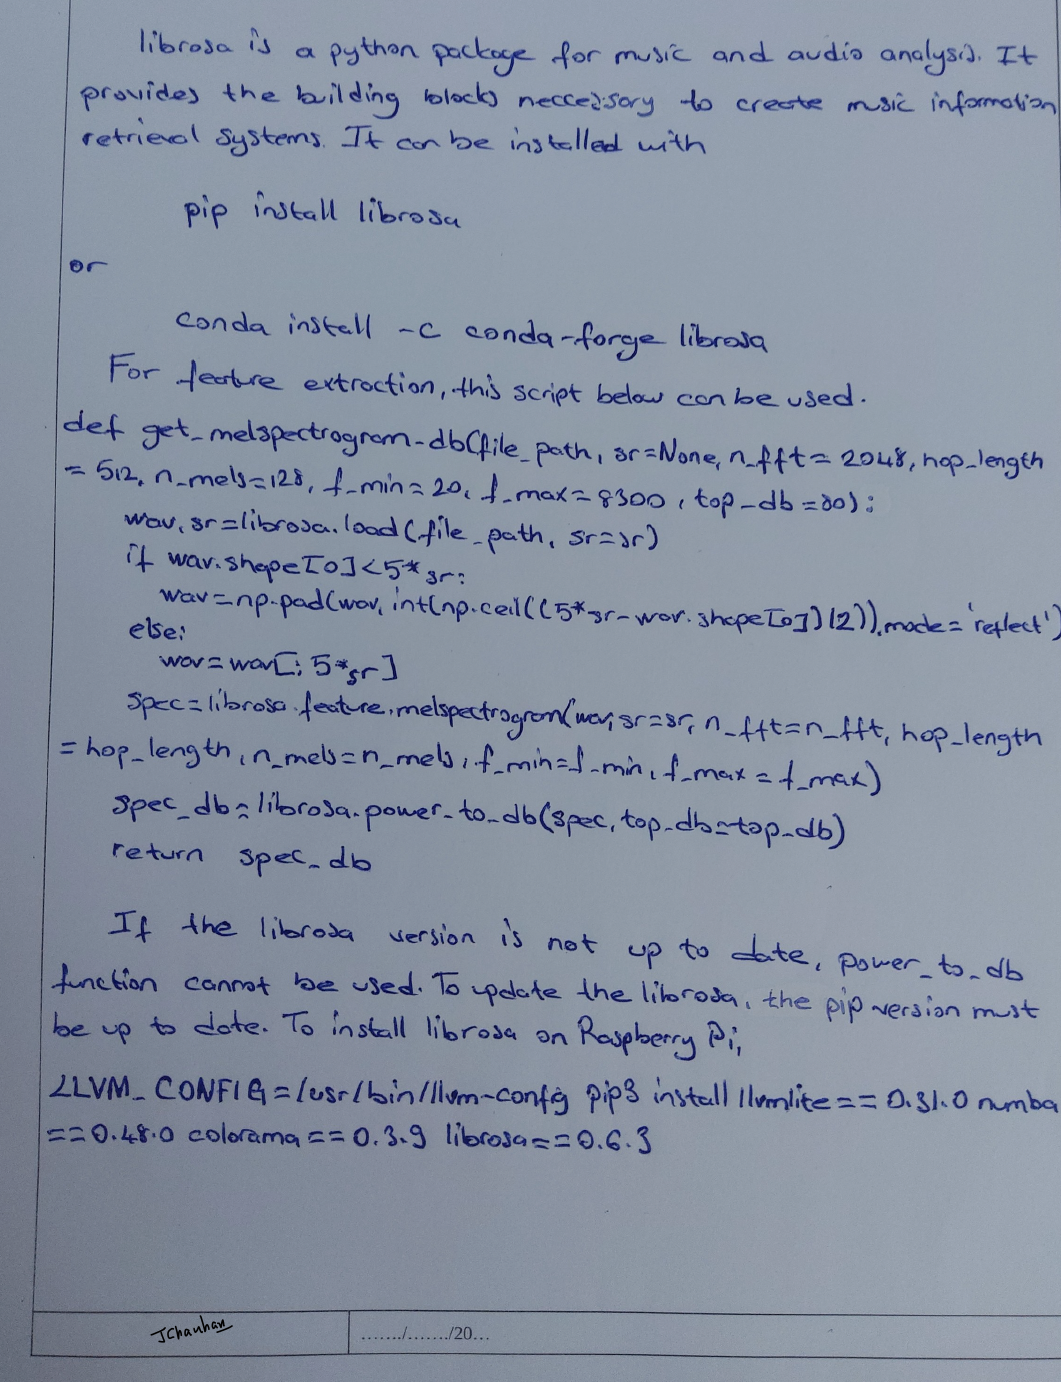 librosa is a python package for music and audio analysis. It
provides the building blocks neccessary to create music information
retrieval systems. It can be installed with
pip install librosa
or
conda install -c conda-forge librosa
For feature extraction, this script below can be used.
def get_melspectrogram-db(file_path, sr=None, n_fft=2048, hop_length
=512, n_mels=128, f_min=20, f_max=8300, top_db=80):
wav, sr=librosa.load(file_path, sr=sr)
if wav.shape[0]<5*sr:
wav=np.pad(wav, int(np.ceil((5*sr-wav.shape[0])/2)), mode='reflect')
else:
wav=wav[:5*sr]
spec=librosa.feature.melspectrogram(wav, sr=sr, n_fft=n_fft, hop_length
=hop_length, n_mels=n_mels, f_min=f_min, f_max=f_max)
spec_db=librosa.power_to_db(spec, top_db=top_db)
return spec_db
If the librosa version is not up to date, power_to_db
function cannot be used. To update the librosa, the pip version must
be up to date. To install librosa on Raspberry Pi,
LLVM_CONFIG=/usr/bin/llvm-config pip3 install llvmlite==0.31.0 numba
==0.48.0 colorama==0.3.9 librosa==0.6.3
JChauhan
......./......./20...